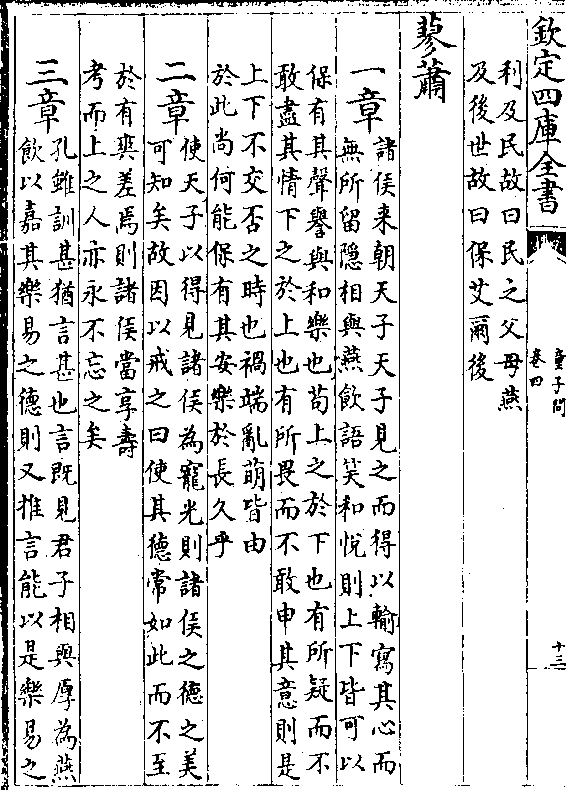 欽定四庫全書
童子問
卷四
十三
利及民故曰民之父母燕
及後世故曰保艾爾後
蓼蕭
一章
諸侯来朝天子天子見之而得以輸寫其心而
無所留隠相與燕飲語笑和悦則上下皆可以
保有其聲譽與和樂也苟上之於下也有所疑而不
敢盡其情下之於上也有所畏而不敢申其意則是
上下不交否之時也禍端亂萌皆由
於此尚何能保有其安樂於長久乎
二章
使天子以得見諸侯為寵光則諸侯之德之美
可知矣故因以戒之曰使其德常如此而不至
於有爽差焉則諸侯當享壽
考而上之人亦永不忘之矣
三章
孔雖訓甚猶言甚也言既見君子相與厚為燕
飲以嘉其樂易之德則又推言能以是樂易之